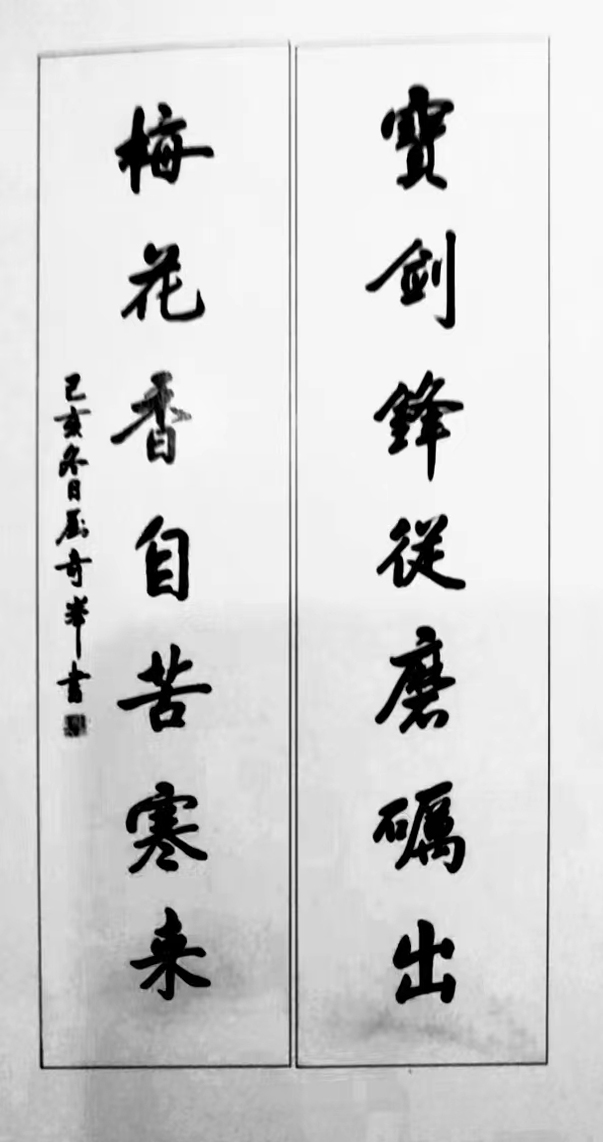 寶劍鋒從磨礪出
梅花香自苦寒来
己亥冬日房奇峯书